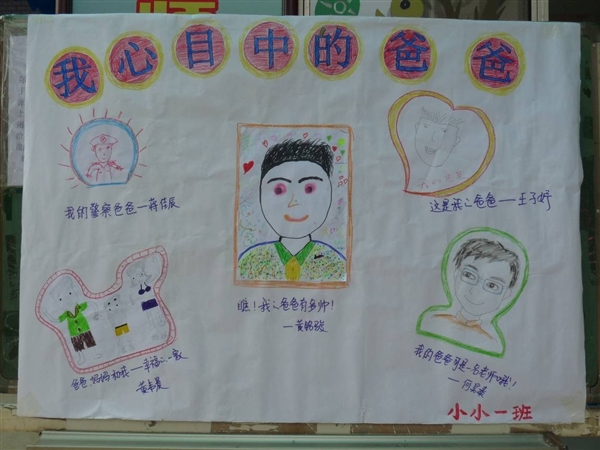 我心目中的爸爸
我们警察爸爸—蒋佳辰
这是我心爸爸——王子妤
瞧！我心爸爸有多帅！
—黄
爸爸 妈妈和我—幸福心一家
黄
我的爸爸可是一名老师哦！
—何
小小一班